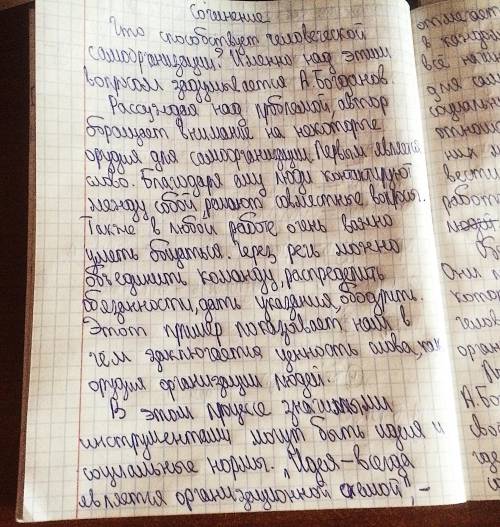 Сочинение
Что способствует человеческой
самоорганизации? Именно над этим
вопросом задумывается А.Богданов.
Рассуждая над проблемой, автор
обращает внимание на некоторые
орудия для самоорганизации. Первым является
слово. Благодаря ему люди контактируют
между собой, решают совместные вопросы.
Также в любой работе очень важно
уметь общаться. Через речь можно
объединить команду, распределить
обязанности, дать указания, ободрить.
Этот пример показывает нам в
чем заключается ценность слова, как
орудия организации людей.
В этом процессе значимыми
инструментами могут быть идея и
социальные нормы. „Идея – всегда
является организационной схемой", –
отмечает
в каждой
для
них
работ
Они
кото
А.Бог